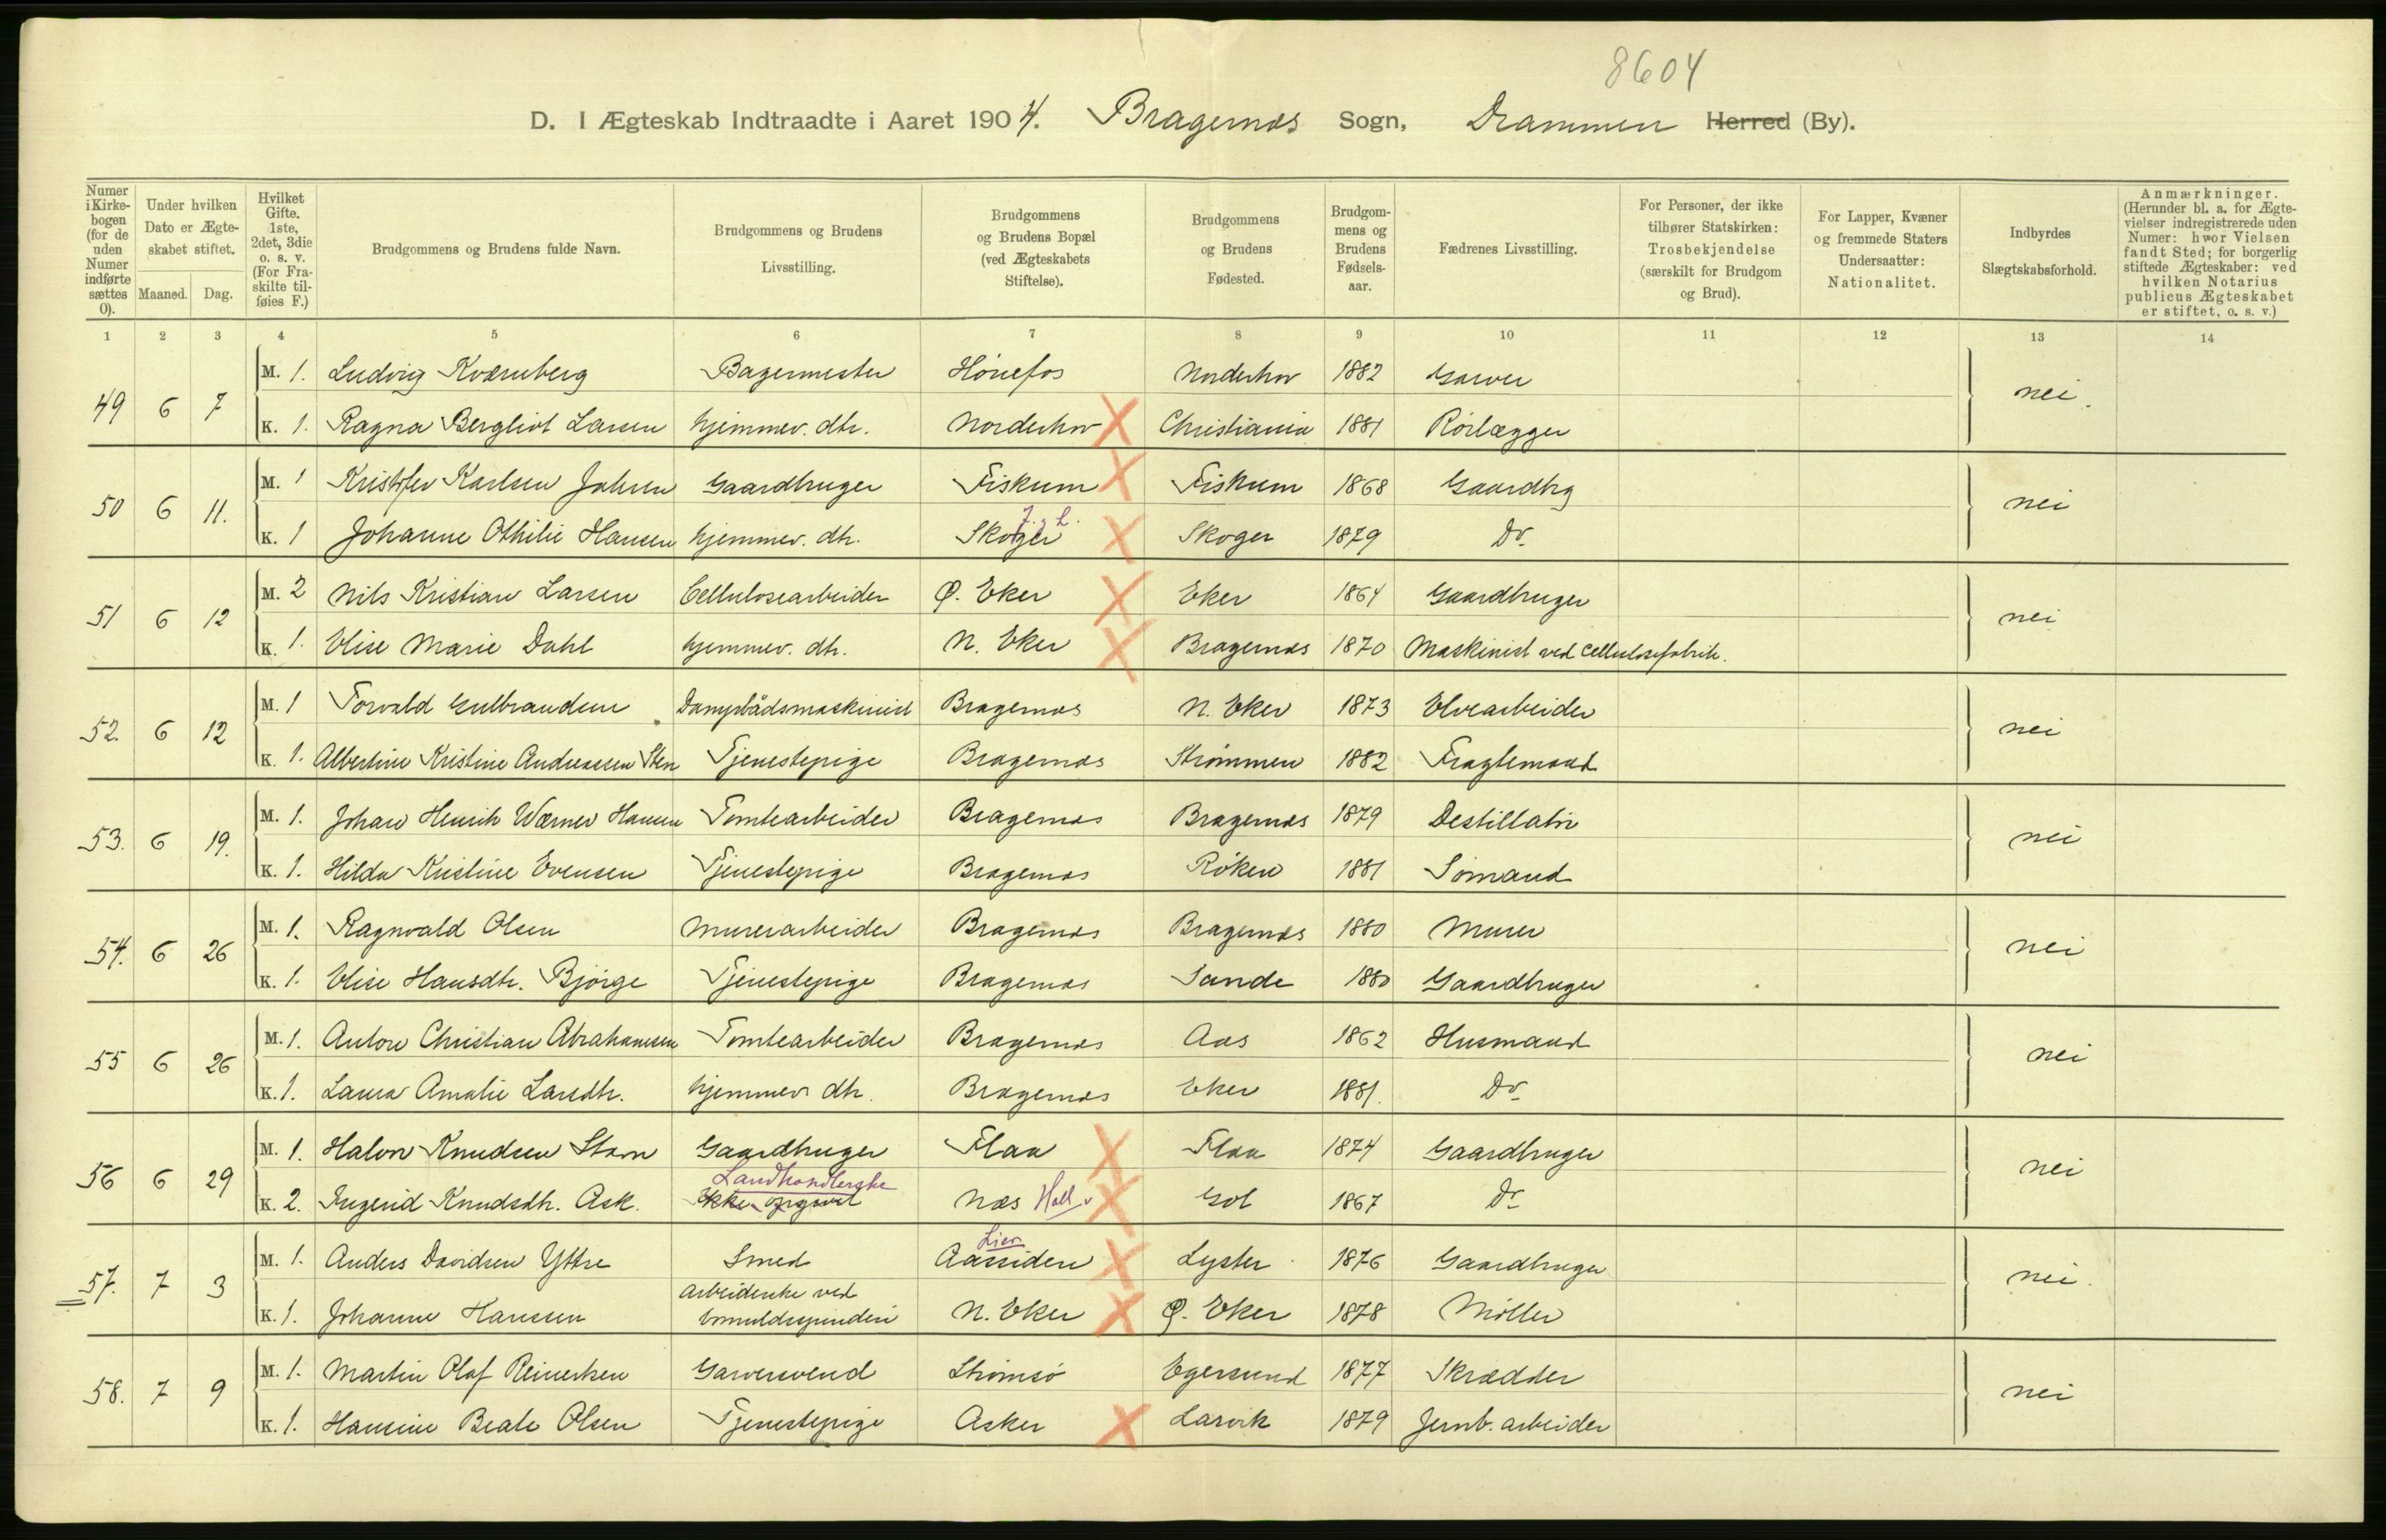 8604
D. I Ægteskab Indtraadte i Aaret 1904. Bragernæs Sogn, Drammen Herred (By).
Numer i Kirkebogen (for de uden Numer indførte sættes 0).
Under hvilken Dato er Ægteskabet stiftet.
Maaned. Dag.
Hvilket Gifte. 1ste, 2det, 3die o. s. v. (For Fraskilte tilføies F.)
Brudgommens og Brudens fulde Navn.
Brudgommens og Brudens Livsstilling.
Brudgommens og Brudens Bopæl (ved Ægteskabets Stiftelse).
Brudgommens og Brudens Fødested.
Brudgommens og Brudens Fødselsaar.
Fædrenes Livsstilling.
For Personer, der ikke tilhører Statskirken: Trosbekjendelse (særskilt for Brudgom og Brud).
For Lapper, Kvæner og fremmede Staters Undersaatter: Nationalitet.
Indbyrdes Slægtskabsforhold.
Anmærkninger. (Herunder bl. a. for Ægtevielser indregistrerede uden Numer: hvor Vielsen fandt Sted; for borgerlig stiftede Ægteskaber: ved hvilken Notarius publicus Ægteskabet er stiftet, o. s. v.)
1 2 3 4 5 6 7 8 9 10 11 12 13 14
49 6 7 M. 1. Ludvig Kværnberg Bagermester Hønefos Norderhov 1882 Garver nei.
K. 1. Ragna Bergliot Larsen hjemmev. dtr. Norderhov Christiania 1881 Rørlægger
50 6 11. M. 1 Kristofer Karlsen Johsen Gaardbruger Fiskum Fiskum 1868 Gaardbrg nei
K. 1 Johanne Othilie Hansen hjemmev. dtr. Skoger Skoger 1879 Do
51 6 12 M. 2 Nils Kristian Larsen Cellulosearbeider Ø. Eker Eker 1864 Gaardbruger nei
K. 1. Elise Marie Dahl hjemmev. dtr. N. Eker Bragernæs 1870 Maskinist ved Cellulosefabrik.
52. 6 12 M. 1 Torvald Gulbrandsen Dampbådsmaskinist Bragernæs N. Eker 1873 Elvearbeider nei
K. 1. Albertine Kristine Andreassen Sten Tjenestepige Bragernæs Strømmen 1882 Fragtemand
53. 6 19. M. 1. Johan Henrik Wærner Hansen Tomtearbeider Bragernæs Bragernæs 1879 Destillatør nei
K. 1. Hilda Kristine Evensen Tjenestepige Bragernæs Røken 1881 Sømand
54. 6 26 M. 1. Ragnvald Olsen Murerarbeider Bragernæs Bragernæs 1880 Murer nei
K. 1. Elise Hansdtr. Bjørge Tjenestepige Bragernæs Sande 1880 Gaardbruger
55 6 26 M. 1. Anton Christian Abrahamsen Tomtearbeider Bragernæs Aas 1862 Husmand nei
K. 1. Laura Amalie Larsdtr. hjemmev. dtr. Bragernæs Eker 1881. Do
56 6 29 M. 1. Halvor Knudsen Stavn Gaardbruger Flaa Flaa 1874 Gaardbruger nei
Landhandlerske
K. 2. Ingerid Knudsdtr. Ask. Ikke opgivet Næs Hall. Gol 1867 Do
Lier
57. 7 3 M. 1. Anders Davidsen Yttre Smed Aassiden Lyster 1876 Gaardbruger nei.
K. 1. Johanne Hanssen Arbeiderske ved Bomuldsspinderi N. Eker Ø. Eker 1878 Møller
58. 7 9 M. 1. Martin Olaf Reinertsen Garversvend Strømsø Egersund 1877 Skrædder nei
K. 1. Hansine Beate Olsen Tjenestepige Asker Larvik 1879 Jernb. arbeider